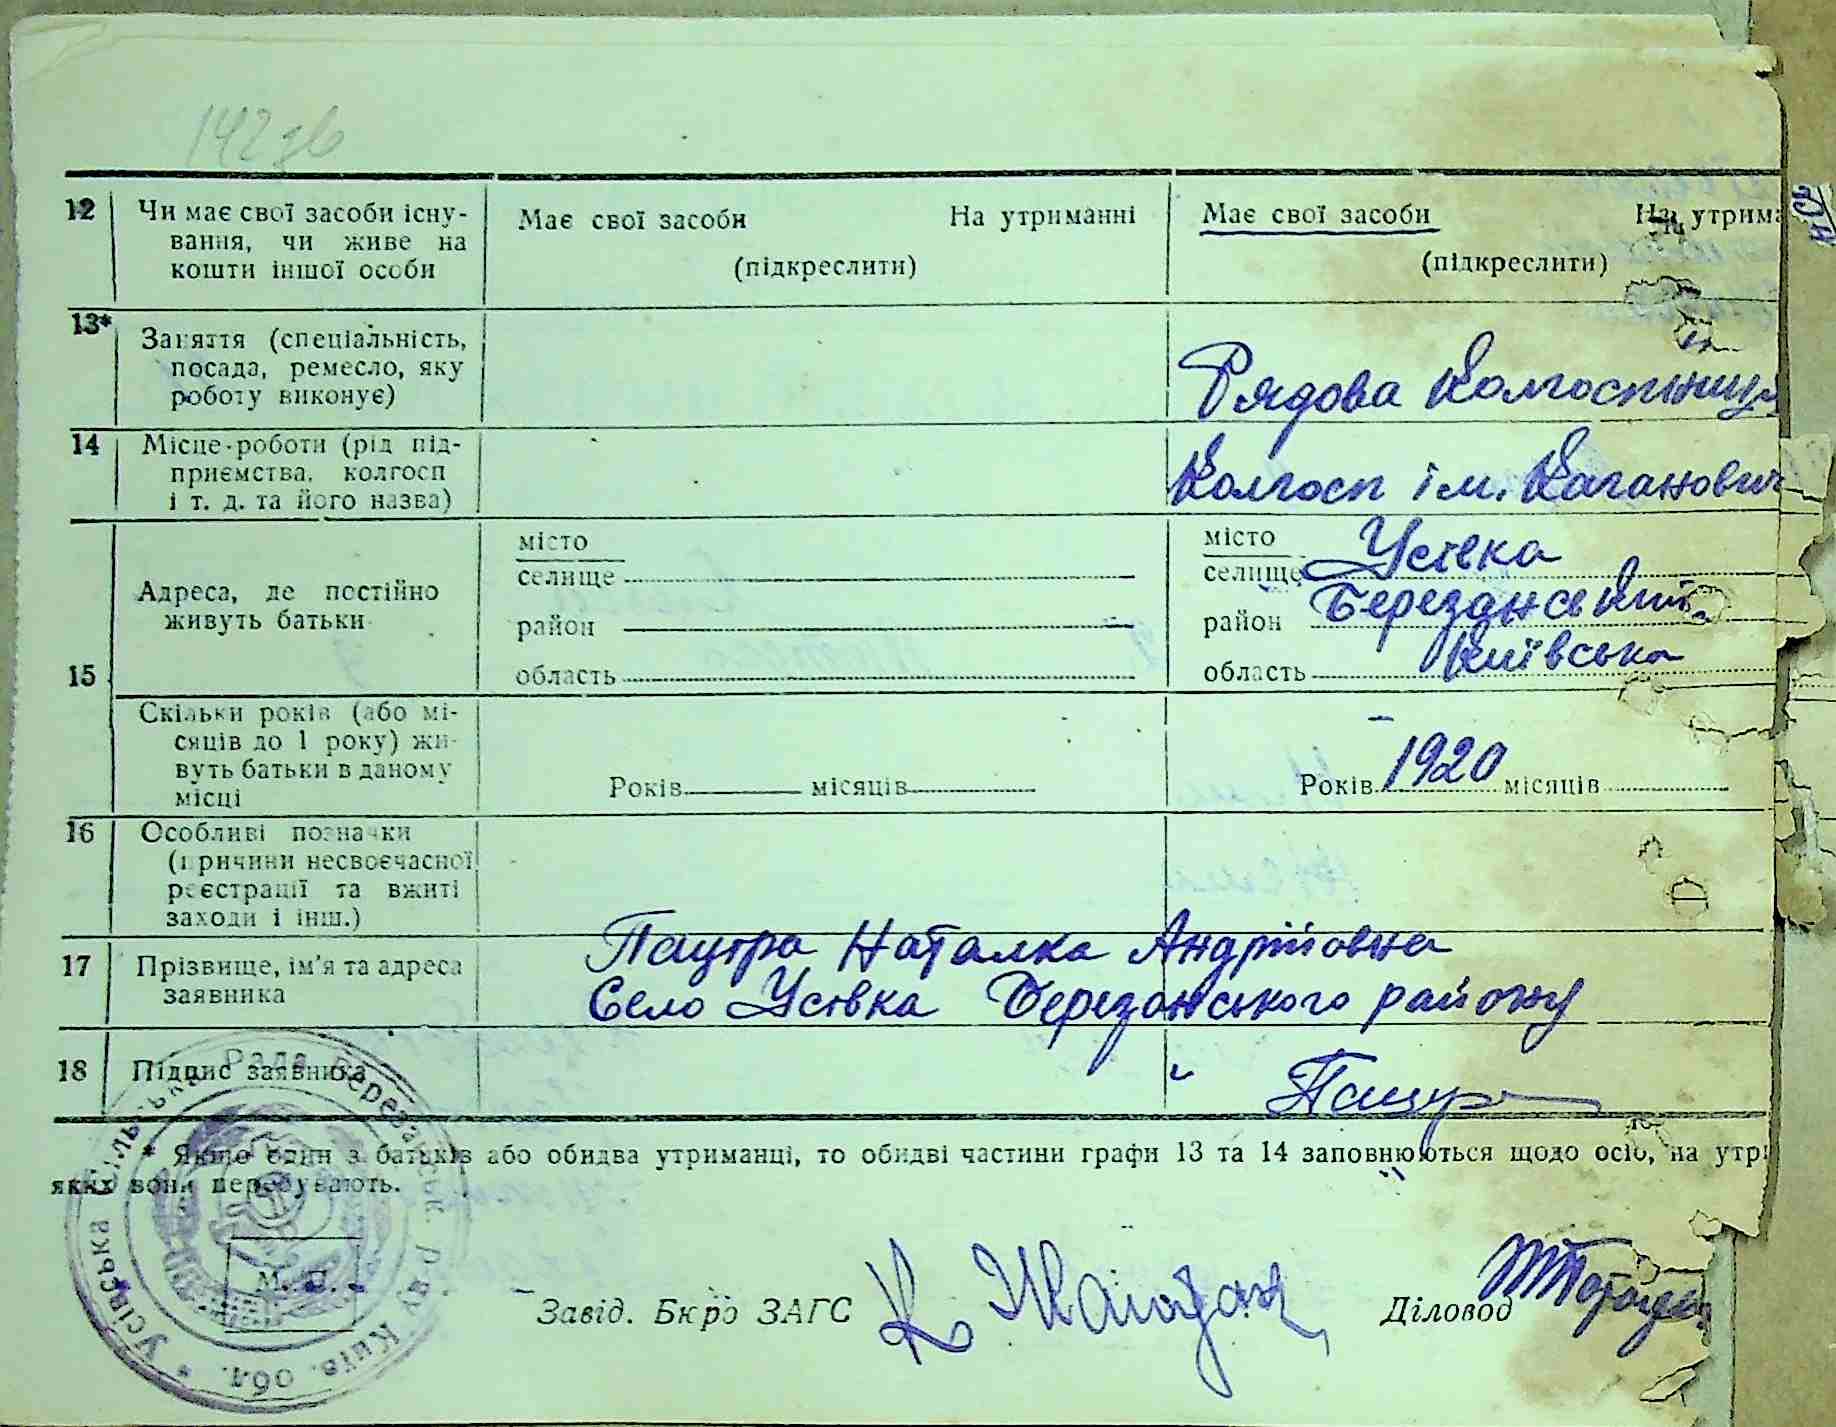 142зв
12 Чи має свої засоби існу-
вання, чи живе на
кошти іншої особи
Має свої засоби На утриманні
(підкреслити)
Має свої засоби На утрима
(підкреслити)
13* Заняття (спеціальність,
посада, ремесло, яку
роботу виконує)
Рядова колгоспниця
14 Місце роботи (рід під-
приємства, колгосп
і т. д. та його назва)
Колгосп ім. Кагановича
15 Адреса, де постійно
живуть батьки
місто
селище
район
область
місто
селище Усівка
район Березанський
область Київська
Скільки років (або мі-
сяців до 1 року) жи-
вуть батьки в даному
місці
Років місяців
Років 1920 місяців
16 Особливі позначки
(причини несвоєчасної
реєстрації та вжиті
заходи і інш.)
17 Прізвище, ім'я та адреса
заявника
Пацюра Наталка Андрійовна
Село Усівка Березанського району
18 Підпис заявника
* Якщо один з батьків або обидва утриманці, то обидві частини графи 13 та 14 заповнюються щодо осіб, на утри
яких вони перебувають.
М. П.
Завід. Бюро ЗАГС
Діловод
Усівська сільська Рада Березанськ. р-ну Київ. обл.